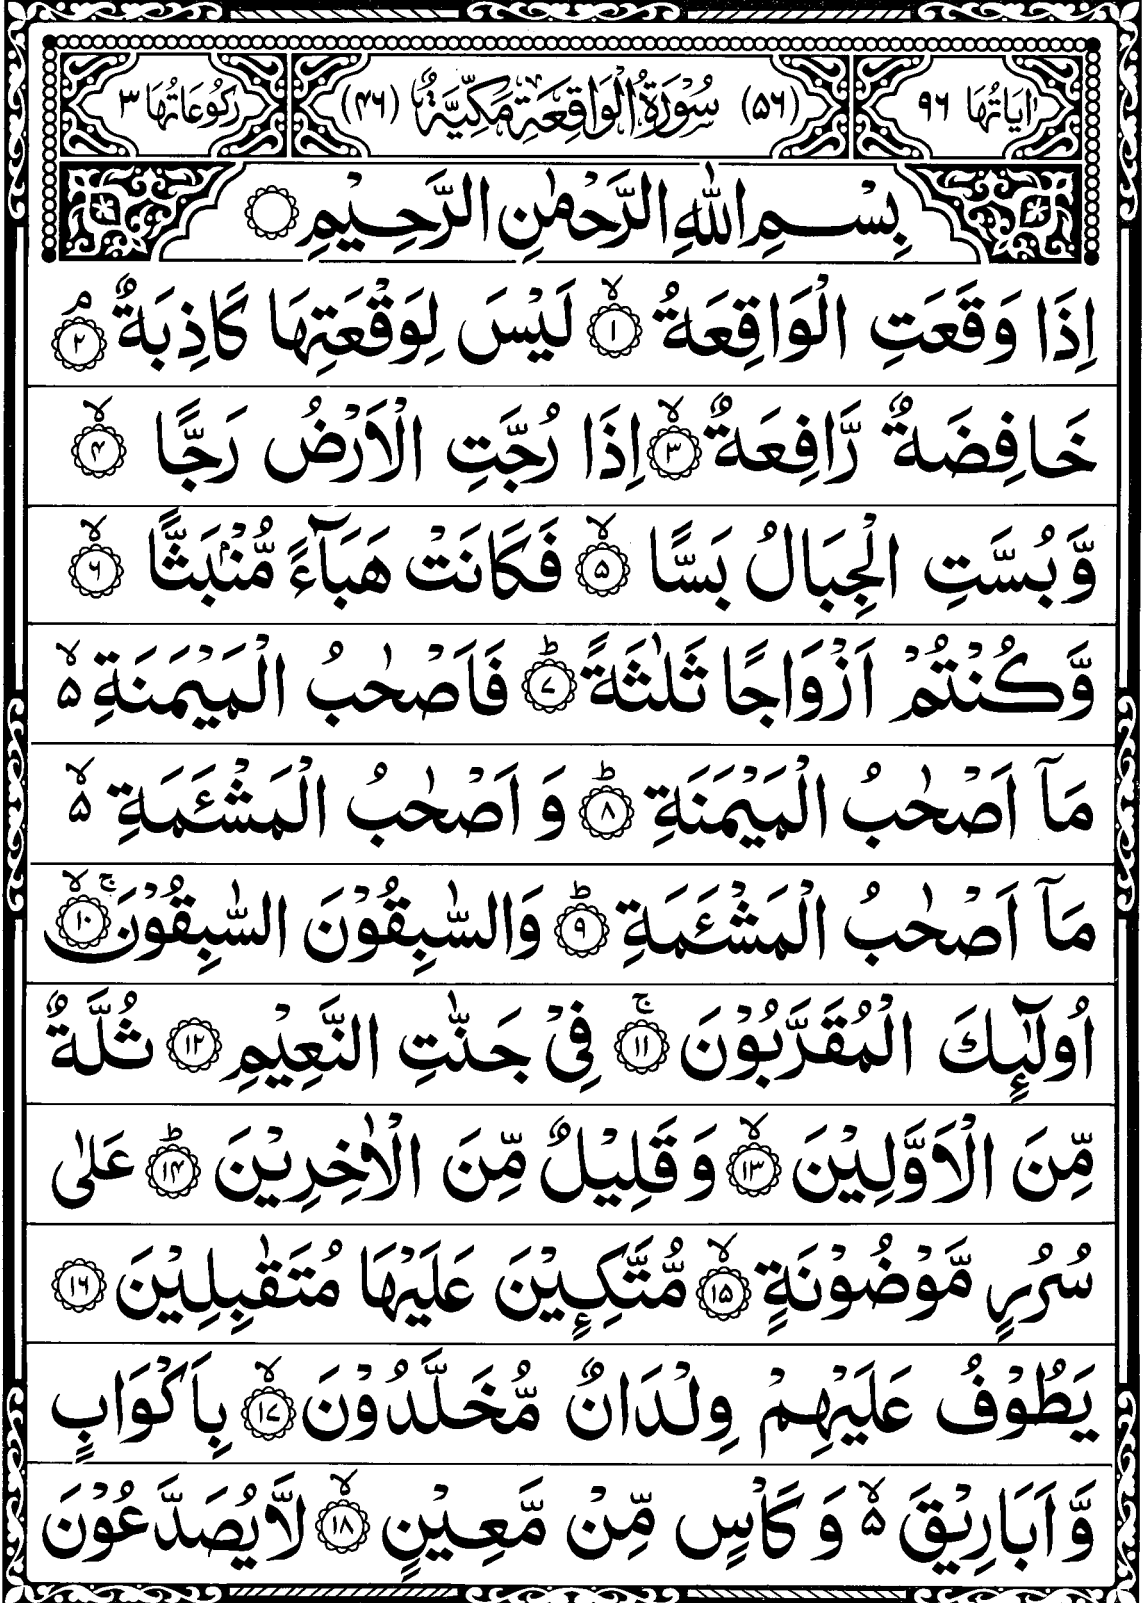 اٰيَاتُهَا ٩٦ (٥٦) سُوْرَةُ الْوَاقِعَةِ مَكِّيَّةٌ (۴٦) رُكُوْعَاتُهَا ٣
بِسْمِ اللّٰهِ الرَّحْمٰنِ الرَّحِيْمِ
اِذَا وَقَعَتِ الْوَاقِعَةُ ۙ﴿۱﴾ لَيْسَ لِوَقْعَتِهَا كَاذِبَةٌ ۘ﴿۲﴾
خَافِضَةٌ رَّافِعَةٌ ۙ﴿۳﴾ اِذَا رُجَّتِ الْاَرْضُ رَجًّا ۙ﴿۴﴾
وَّبُسَّتِ الْجِبَالُ بَسًّا ۙ﴿۵﴾ فَكَانَتْ هَبَآءً مُّنْۢبَثًّا ۙ﴿۶﴾
وَّكُنْتُمْ اَزْوَاجًا ثَلٰثَةً ؕ﴿۷﴾ فَاَصْحٰبُ الْمَيْمَنَةِ ۙ۵
مَاۤ اَصْحٰبُ الْمَيْمَنَةِ ؕ﴿۸﴾ وَ اَصْحٰبُ الْمَشْـَٔمَةِ ۙ۵
مَاۤ اَصْحٰبُ الْمَشْـَٔمَةِ ؕ﴿۹﴾ وَالسّٰبِقُوْنَ السّٰبِقُوْنَ ۚۙ﴿۱۰﴾
اُولٰٓئِكَ الْمُقَرَّبُوْنَ ۚ﴿۱۱﴾ فِىْ جَنّٰتِ النَّعِيْمِ ﴿۱۲﴾ ثُلَّةٌ
مِّنَ الْاَوَّلِيْنَ ۙ﴿۱۳﴾ وَ قَلِيْلٌ مِّنَ الْاٰخِرِيْنَ ؕ﴿۱۴﴾ عَلٰى
سُرُرٍ مَّوْضُوْنَةٍ ۙ﴿۱۵﴾ مُّتَّكِـِٕيْنَ عَلَيْهَا مُتَقٰبِلِيْنَ ﴿۱۶﴾
يَطُوْفُ عَلَيْهِمْ وِلْدَانٌ مُّخَلَّدُوْنَ ۙ﴿۱۷﴾ بِاَكْوَابٍ
وَّ اَبَارِيْقَ ۙ۵ وَ كَاْسٍ مِّنْ مَّعِيْنٍ ۙ﴿۱۸﴾ لَّا يُصَدَّعُوْنَ